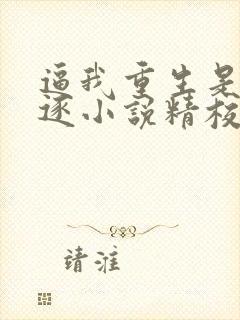 逼我重生是
逐小說精校
靖淮